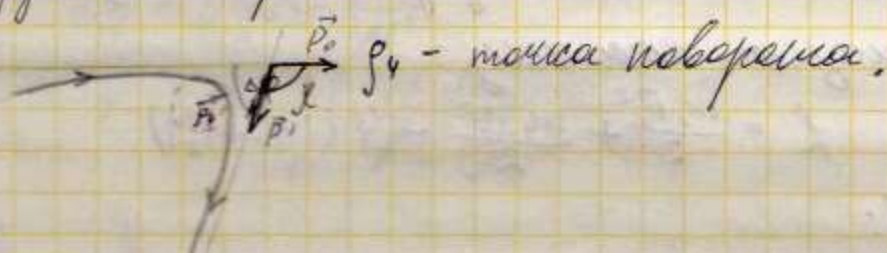 p⃗₀
ρ₄ - точка поворота.
p⃗₁
χ